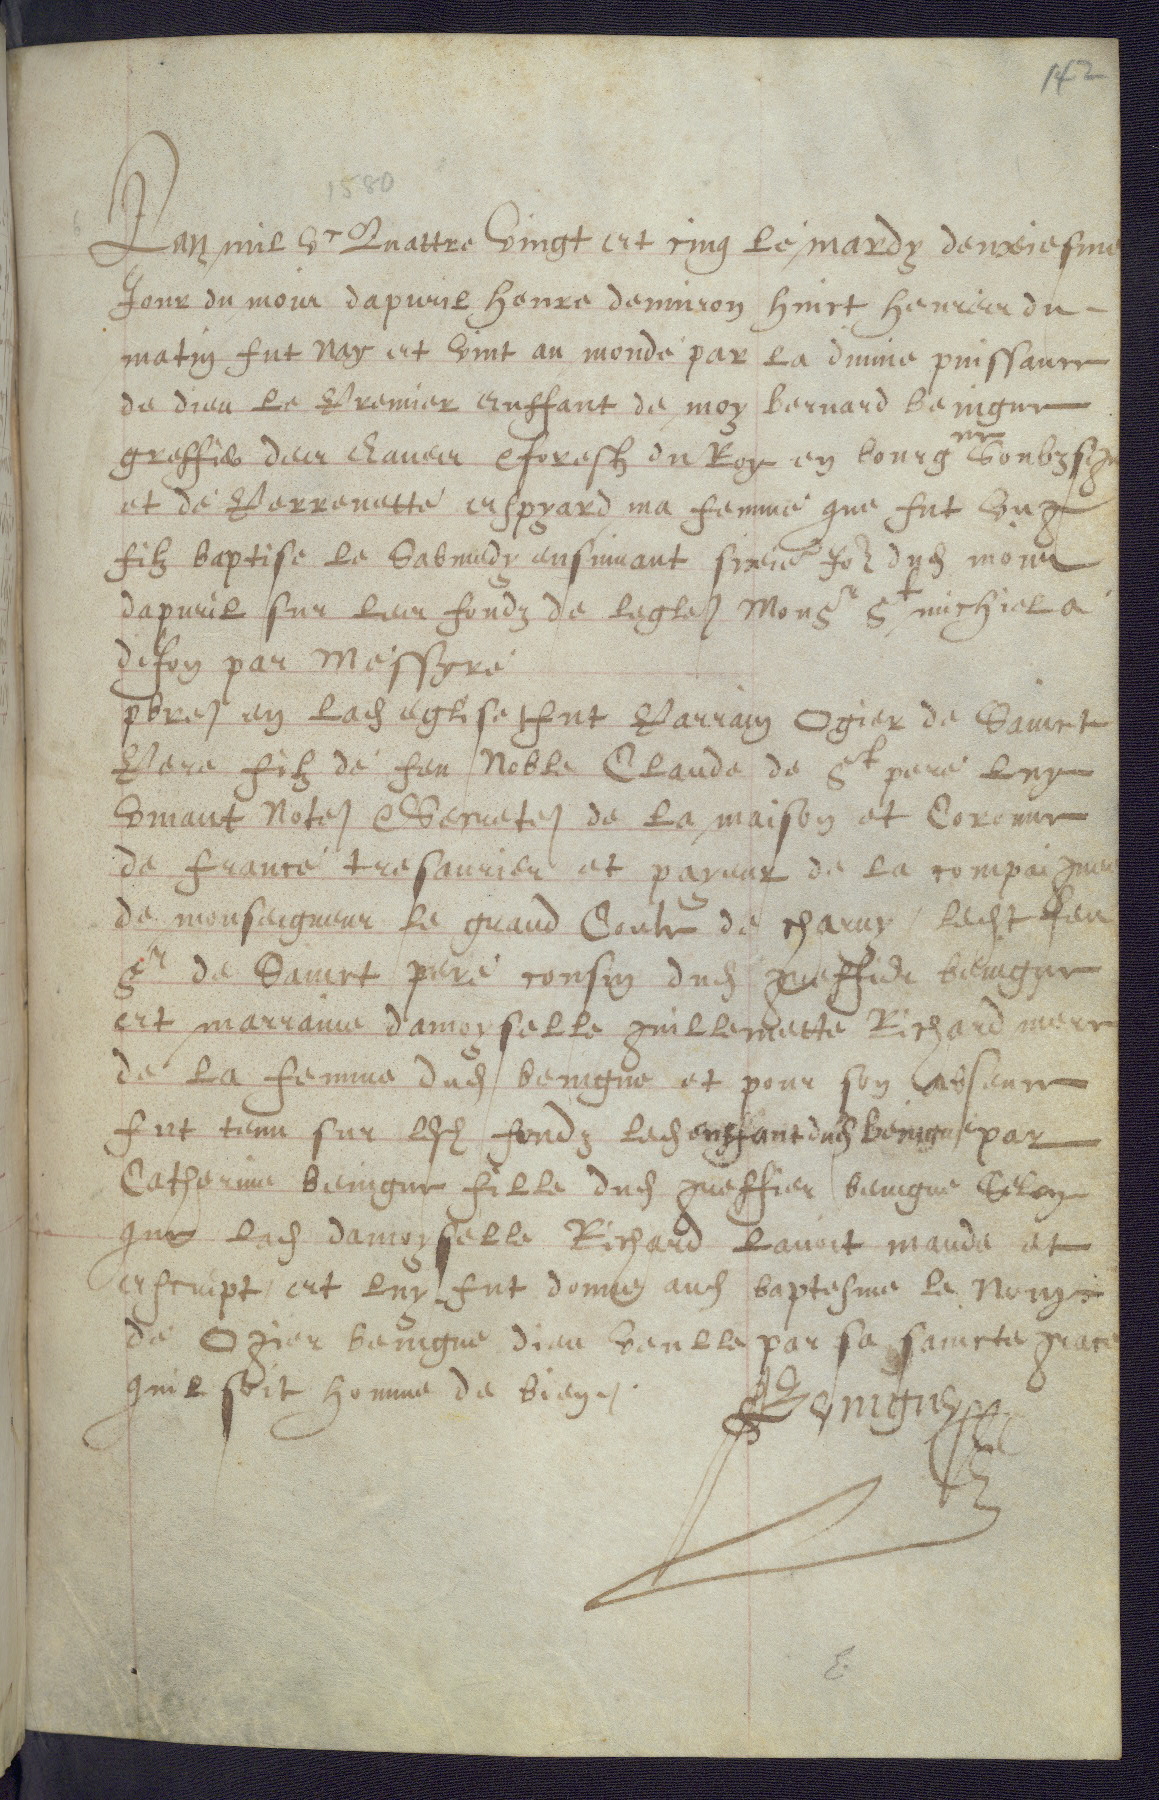 142
1580
Lan mil Vc Quattre Vingt et cinq le mardy deuxiesme
Jour du mois dapvril heure denviron huict heures du
matin fut nay et vint au monde par la divine puissance
de dieu le Premier enffant de moy bernard benigne
greffier des eaues & forestz du Roy en bourgne Soubzsigne
et de Perrenette espyard ma femme que fut ung
filz baptise le Sabmedy ensuivant sixie Jor dud mois
dapvril sur les fondz de legle Monsr St michiel a
dijon par Messyre
pbre en lad eglise fut Parrain Ogier de Sainct
Pere filz de feu Noble Claude de St pere luy
vivant Note & Secrete de la maison et Coronne
de france tresaurier et payeur de la compaignee
de monseigneur le grand Conte de charny led feu
sr de Sainct pere cousin dud greffier benigne
et marraine damoyselle guillemette Richard mere
de la femme dud benigne et pour son absence
fut tenu sur lesd fondz led enffant dud benigne par
Catherine benigne fille dud greffier benigne Selon
que lad damoyselle Richard lavoit mande et
escript et luy fut donne aud baptesme le Nom
de Ogier benigne dieu veulle par sa saincte grace
quil soit homme de bien
Benigne